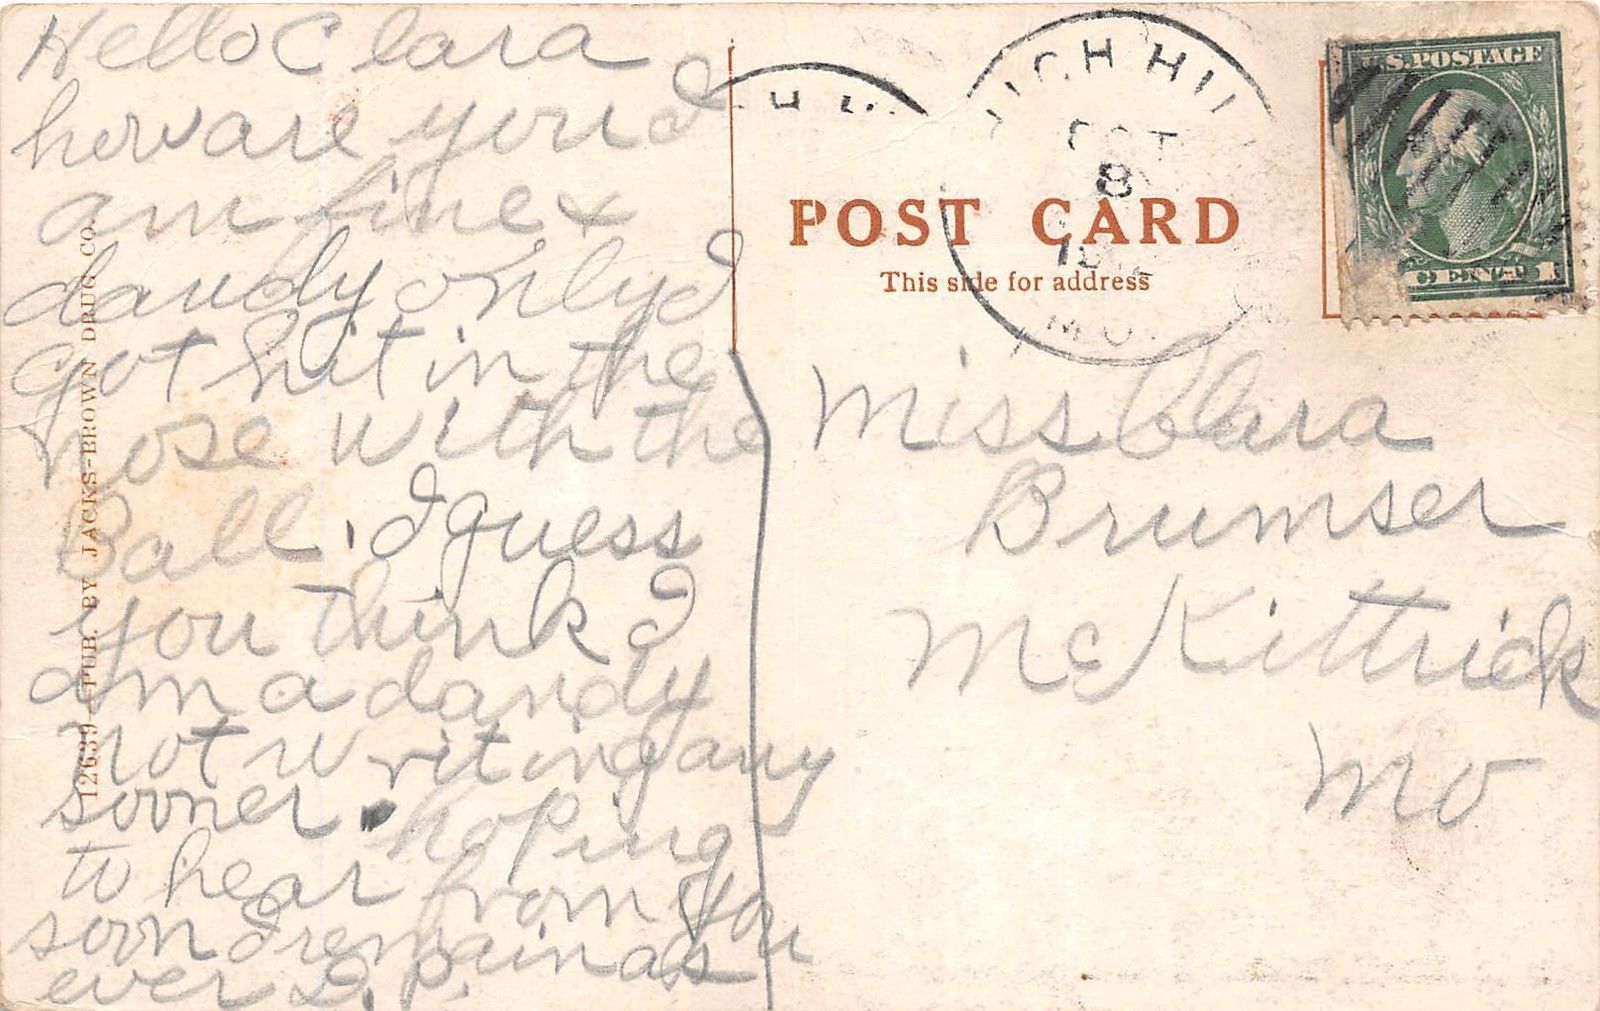 Hello Clara
how are you I
am fine &
dandy only I
got hit in the
nose with the
Ball. I guess
you think I
am a dandy
not writing any
sooner. hoping
to hear from you
soon I remain as
ever
12639 PUB. BY JACKS-BROWN DRUG CO.
HIGH HILL
OCT
8
MO.
U.S. POSTAGE
POST CARD
This side for address
Miss Clara
Brumser
McKittrick
Mo